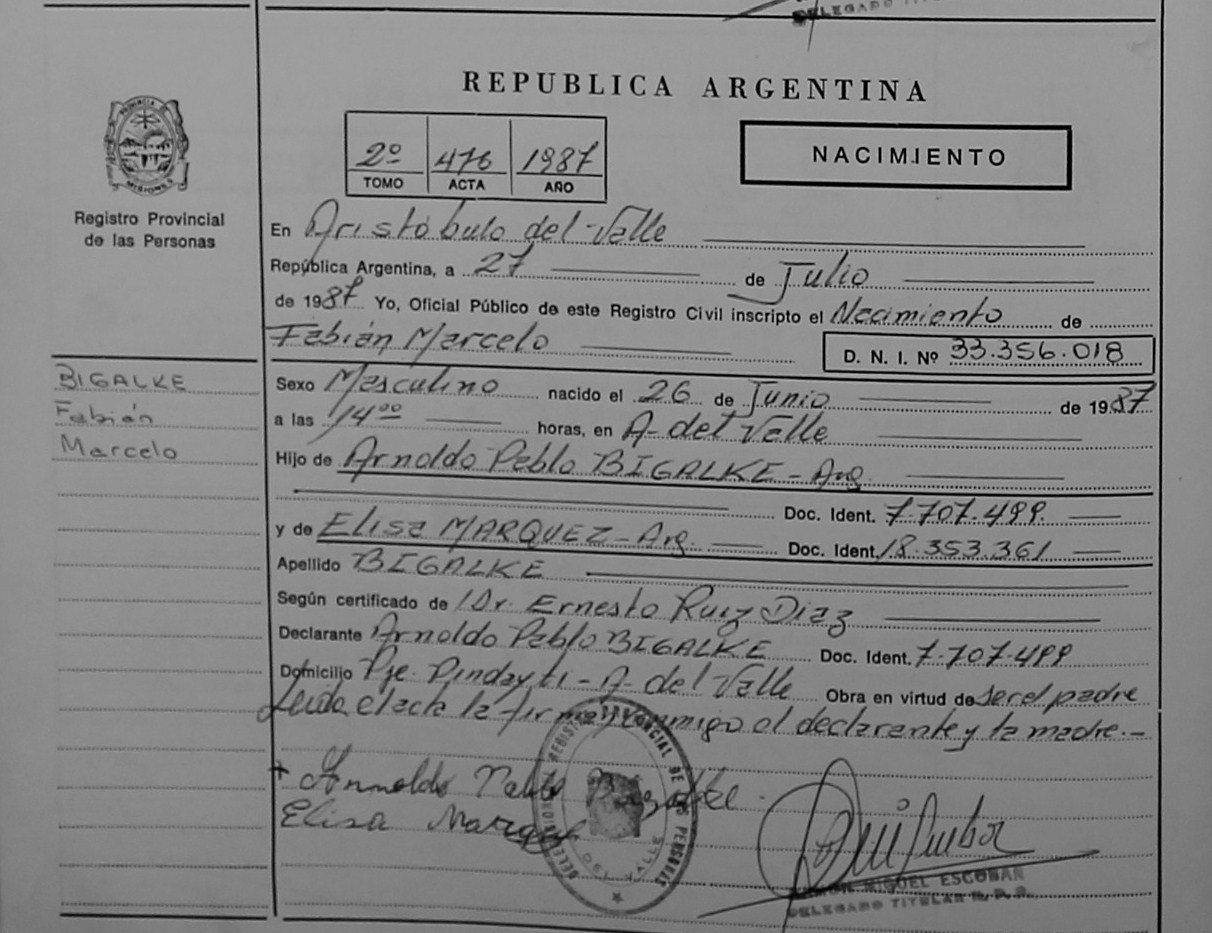 DELEGADO TITULAR
REPUBLICA ARGENTINA
PROVINCIA DE
MISIONES
Registro Provincial
de las Personas
2º 476 1987
TOMO ACTA AÑO
NACIMIENTO
En Aristóbulo del Valle
República Argentina, a 27 de Julio
de 1987 Yo, Oficial Público de este Registro Civil inscripto el Nacimiento de
Fabián Marcelo D. N. I. Nº 33.356.018
BIGALKE
Fabián
Marcelo
Sexo Masculino nacido el 26 de Junio de 1987
a las 14 00 horas, en A- del Valle
Hijo de Arnoldo Pablo BIGALKE - Arg.
Doc. Ident. 7.707.499.
y de Elisa MARQUEZ - Arg. Doc. Ident. 18.353.361
Apellido BIGALKE
Según certificado de Dr. Ernesto Ruiz Diaz
Declarante Arnoldo Pablo BIGALKE Doc. Ident. 7.707.499
Domicilio Pje. Pindayti - A- del Valle Obra en virtud de ser el padre
Leida el acta la firman conmigo el declarante y la madre.-
Arnoldo Pablo Bigalke
Elisa Marquez
REGISTRO PROVINCIAL DE LAS PERSONAS
DEL VALLE
MIGUEL ESCOBAR
DELEGADO TITULAR R. P. P.